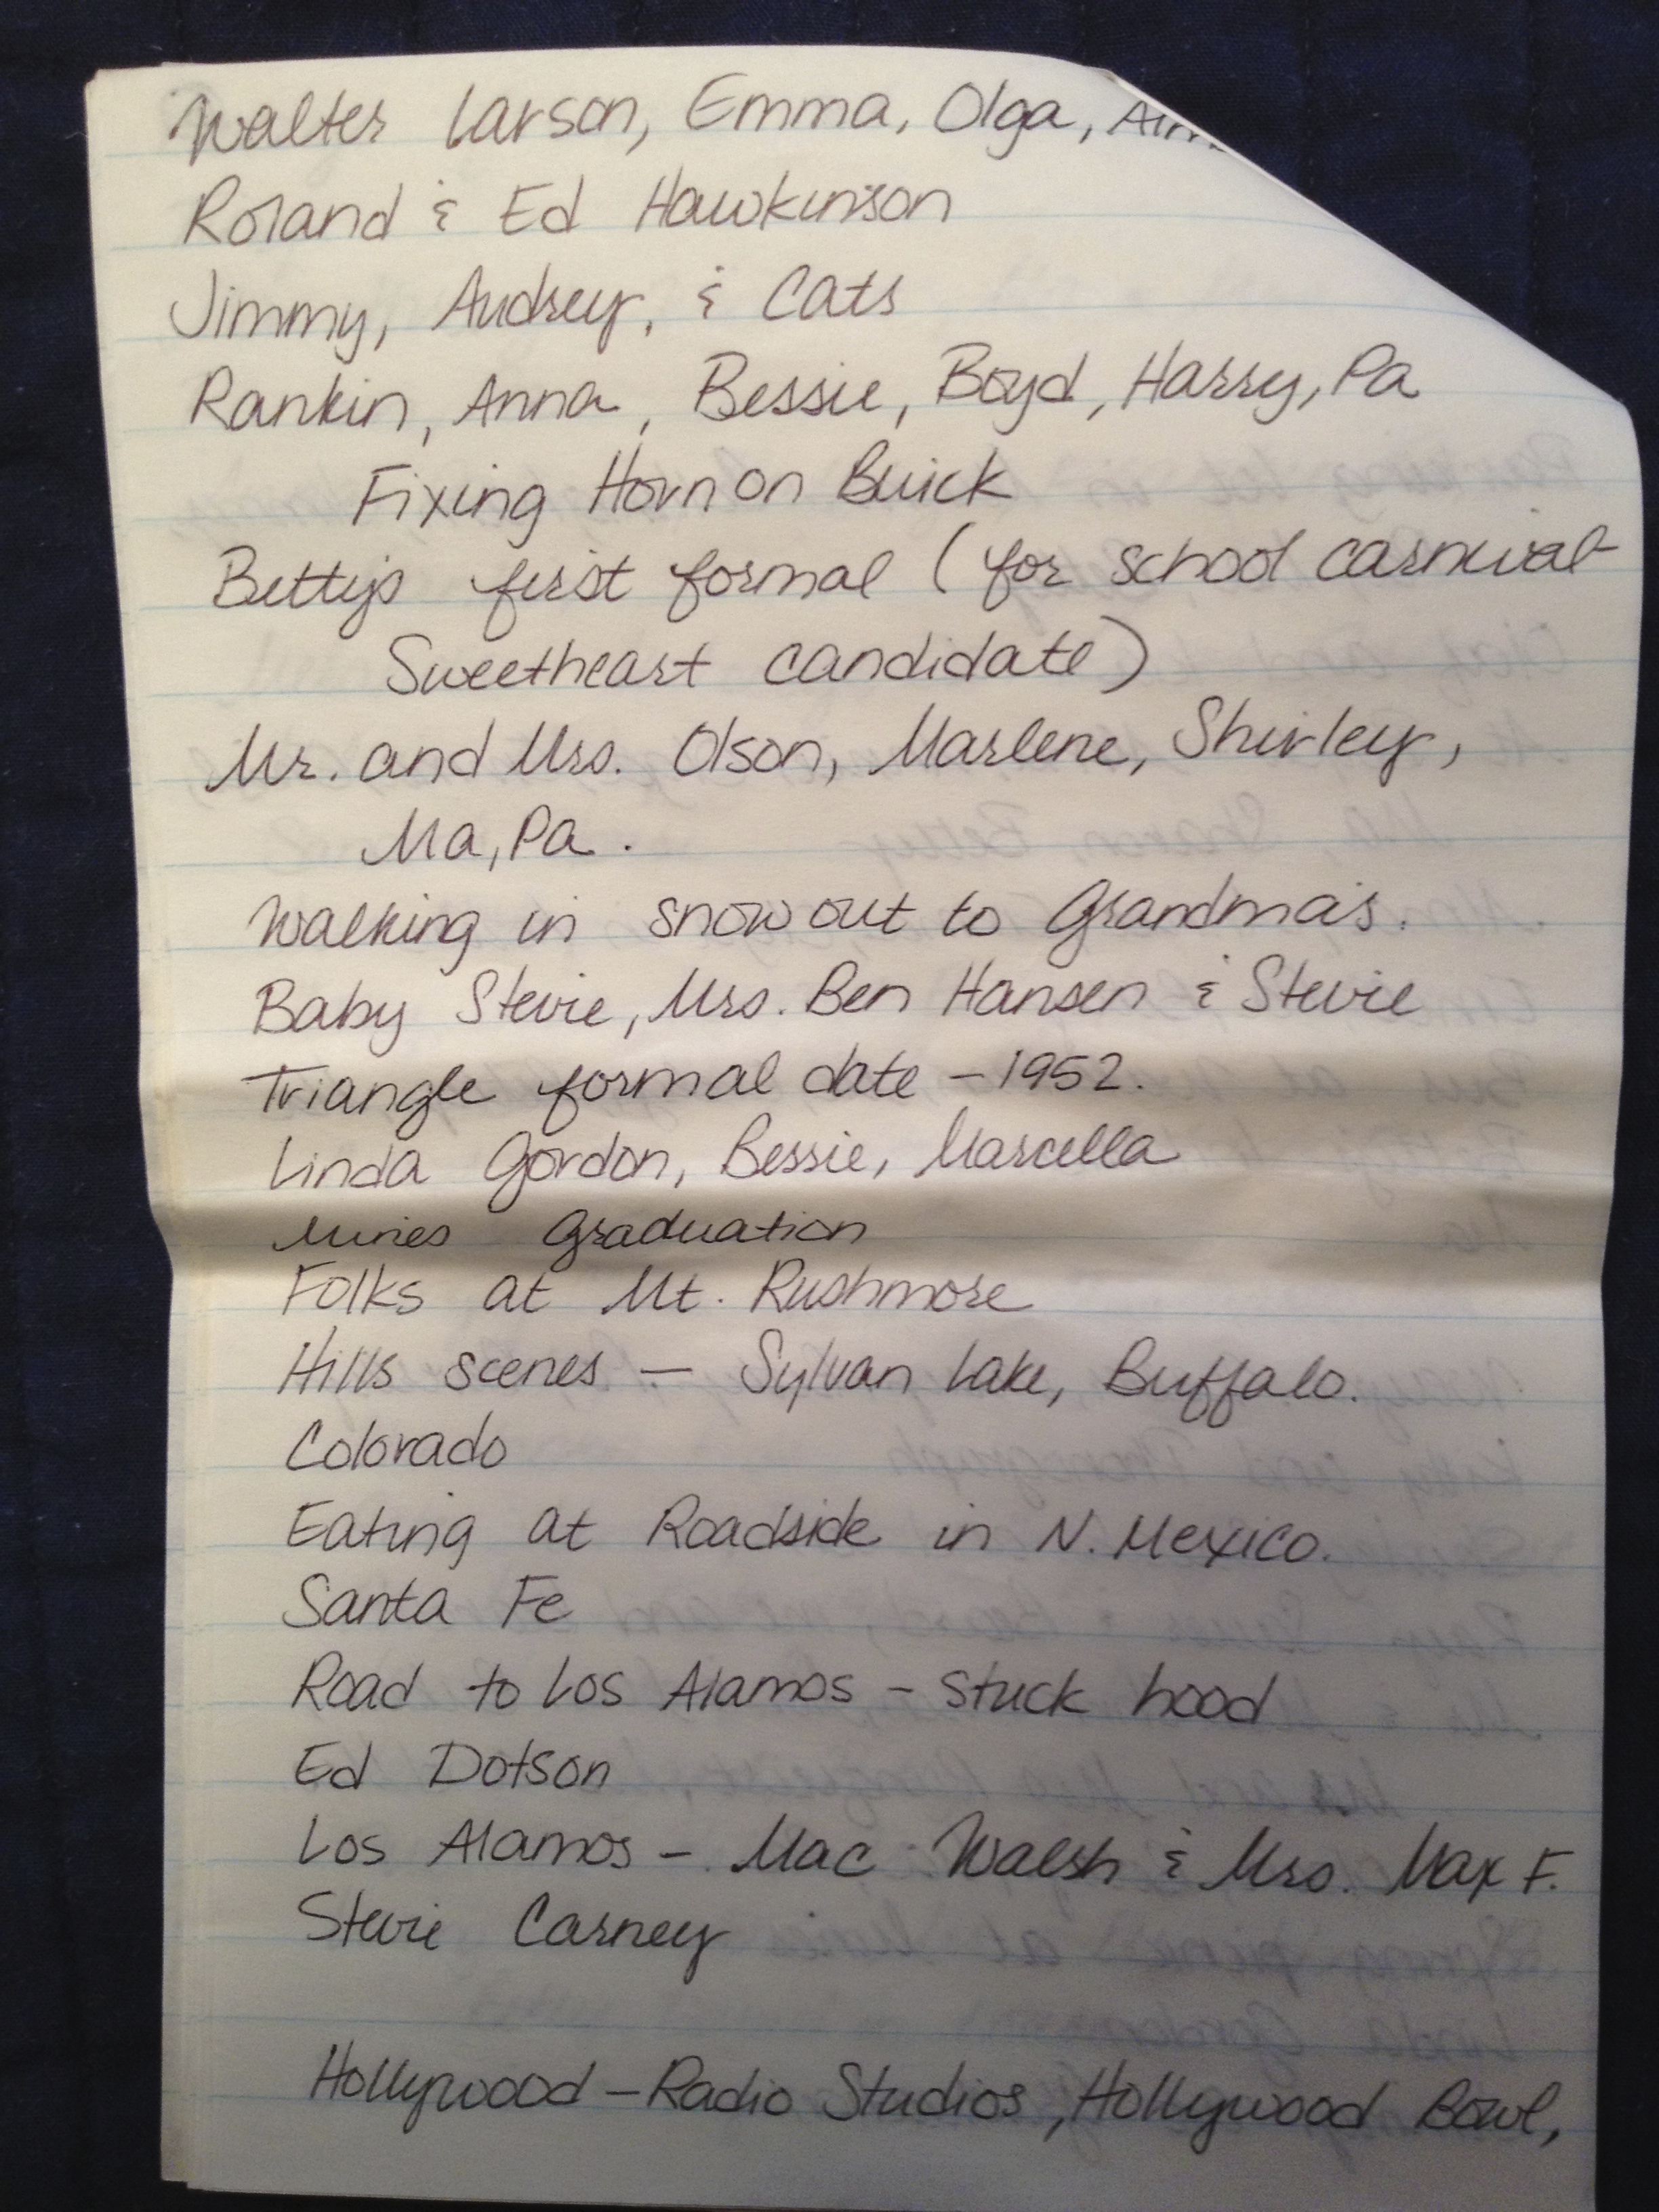 Walter Larson, Emma, Olga,
Roland & Ed Hawkinson
Jimmy, Audrey, & Cats
Rankin, Anna, Bessie, Boyd, Harry, Pa
Fixing Horn on Buick
Betty's first formal (for school carnival
Sweetheart candidate)
Mr. and Mrs. Olson, Marlene, Shirley,
Ma, Pa.
Walking in snow out to Grandma's.
Baby Stevie, Mrs. Ben Hansen & Stevie
Triangle formal date - 1952.
Linda Gordon, Bessie, Marcella
Mines Graduation
Folks at Mt. Rushmore
Hills scenes - Sylvan Lake, Buffalo.
Colorado
Eating at Roadside in N. Mexico.
Santa Fe
Road to Los Alamos - Stuck hood
Ed Dotson
Los Alamos - Mac Walsh & Mrs. Max F.
Stevie Carney
Hollywood - Radio Studios, Hollywood Bowl,